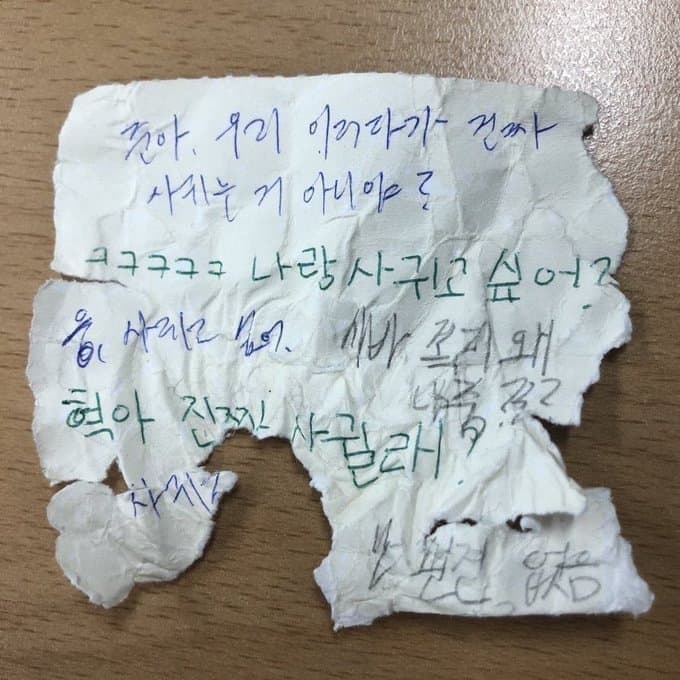 준아. 우리 이러다가 진짜
사귀는 거 아니야?
ㅋㅋㅋㅋㅋ 나랑 사귀고 싶어?
응, 사귀고 싶어. 시바 쪽지 왜
혁아 진짜 사귈래?
없음